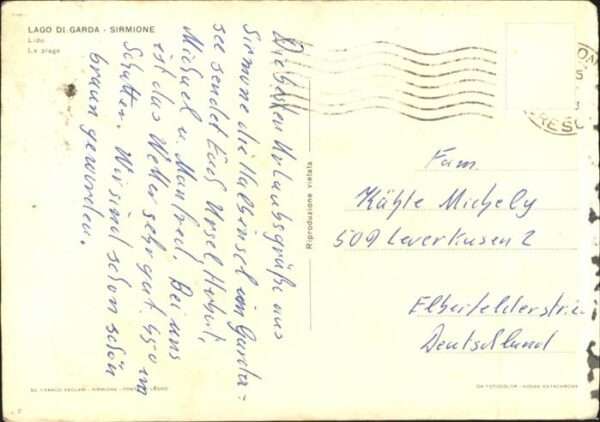 LAGO DI GARDA - SIRMIONE
Lido
La plage
Die besten Urlaubsgrüße aus
Sirmone die Halbinsel im Garda-
see sendet Euch Ursel, Herbert,
Michael u. Manfred. Bei uns
ist das Wetter sehr gut 45° im
Schatten. Wir sind schon schön
braun geworden.
Riproduzione vietata
Fam.
Kähle Michely
509 Leverkusen 2
Elberfelderstr.
Deutschland